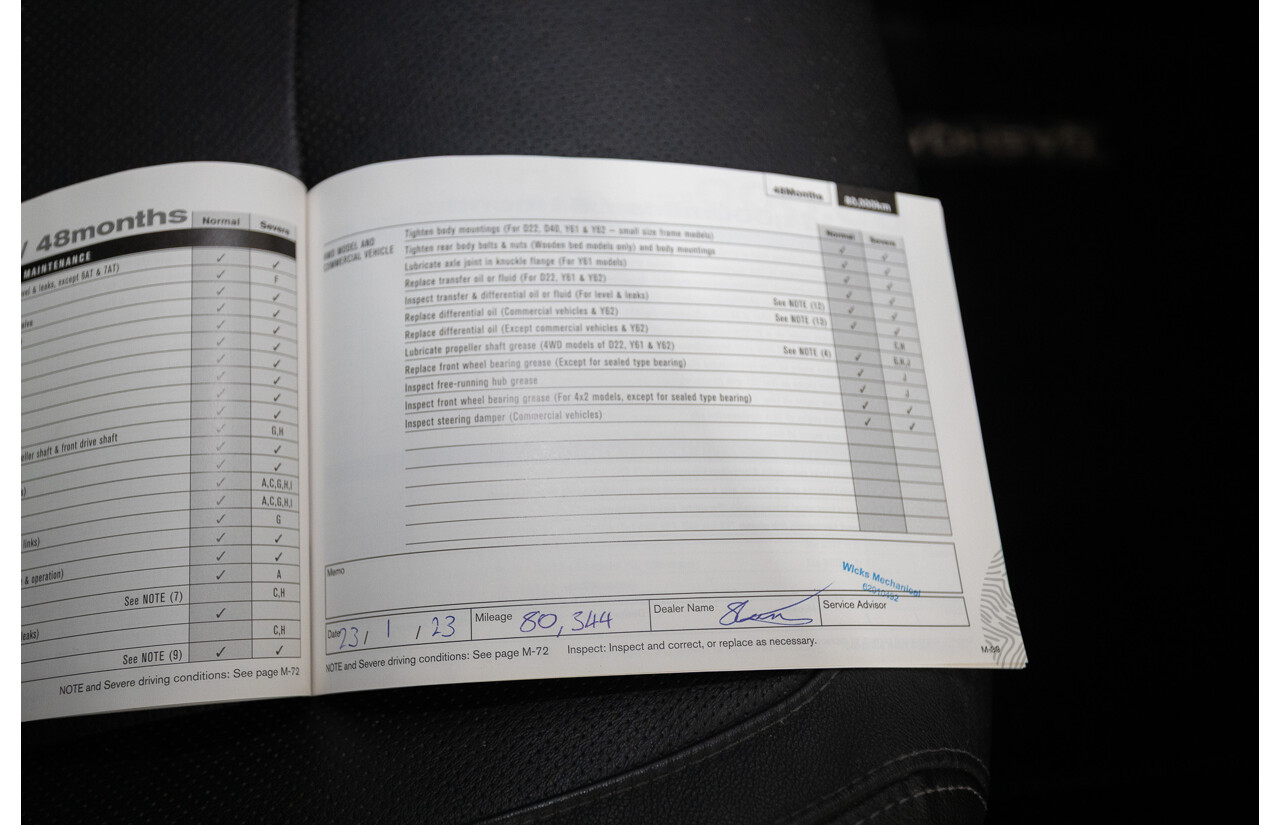 / 48months
Normal
Severe
MAINTENANCE
vel & leaks, except 6AT & 7AT)
✓ ✓
✓ F
✓ ✓
✓ ✓
✓ ✓
✓ ✓
✓ ✓
✓ ✓
✓ ✓
✓ ✓
✓ G,H
eller shaft & front drive shaft
✓ ✓
✓ ✓
✓ A,C,G,H,I
✓ A,C,G,H,I
✓ G
links)
✓ ✓
✓ ✓
& operation)
✓ A
See NOTE (7)
C,H
✓
eaks)
C,H
See NOTE (9)
✓ ✓
NOTE and Severe driving conditions: See page M-72
48Months
80,000km
4WD MODEL AND
COMMERCIAL VEHICLE
Normal
Severe
Tighten body mountings (For D22, D40, Y61 & Y62 – small size frame models)
Tighten rear body bolts & nuts (Wooden bed models only) and body mountings
Lubricate axle joint in knuckle flange (For Y61 models)
Replace transfer oil or fluid (For D22, Y61 & Y62)
Inspect transfer & differential oil or fluid (For level & leaks)
Replace differential oil (Commercial vehicles & Y62) See NOTE (12)
Replace differential oil (Except commercial vehicles & Y62) See NOTE (13)
Lubricate propeller shaft grease (4WD models of D22, Y61 & Y62)
Replace front wheel bearing grease (Except for sealed type bearing) See NOTE (4)
Inspect free-running hub grease
Inspect front wheel bearing grease (For 4x2 models, except for sealed type bearing)
Inspect steering damper (Commercial vehicles)
C,H
G,H,J
J
J
Memo
Wicks Mechanical
62010492
Date 23/ 1 / 23
Mileage 80,344
Dealer Name
Service Advisor
NOTE and Severe driving conditions: See page M-72 Inspect: Inspect and correct, or replace as necessary.